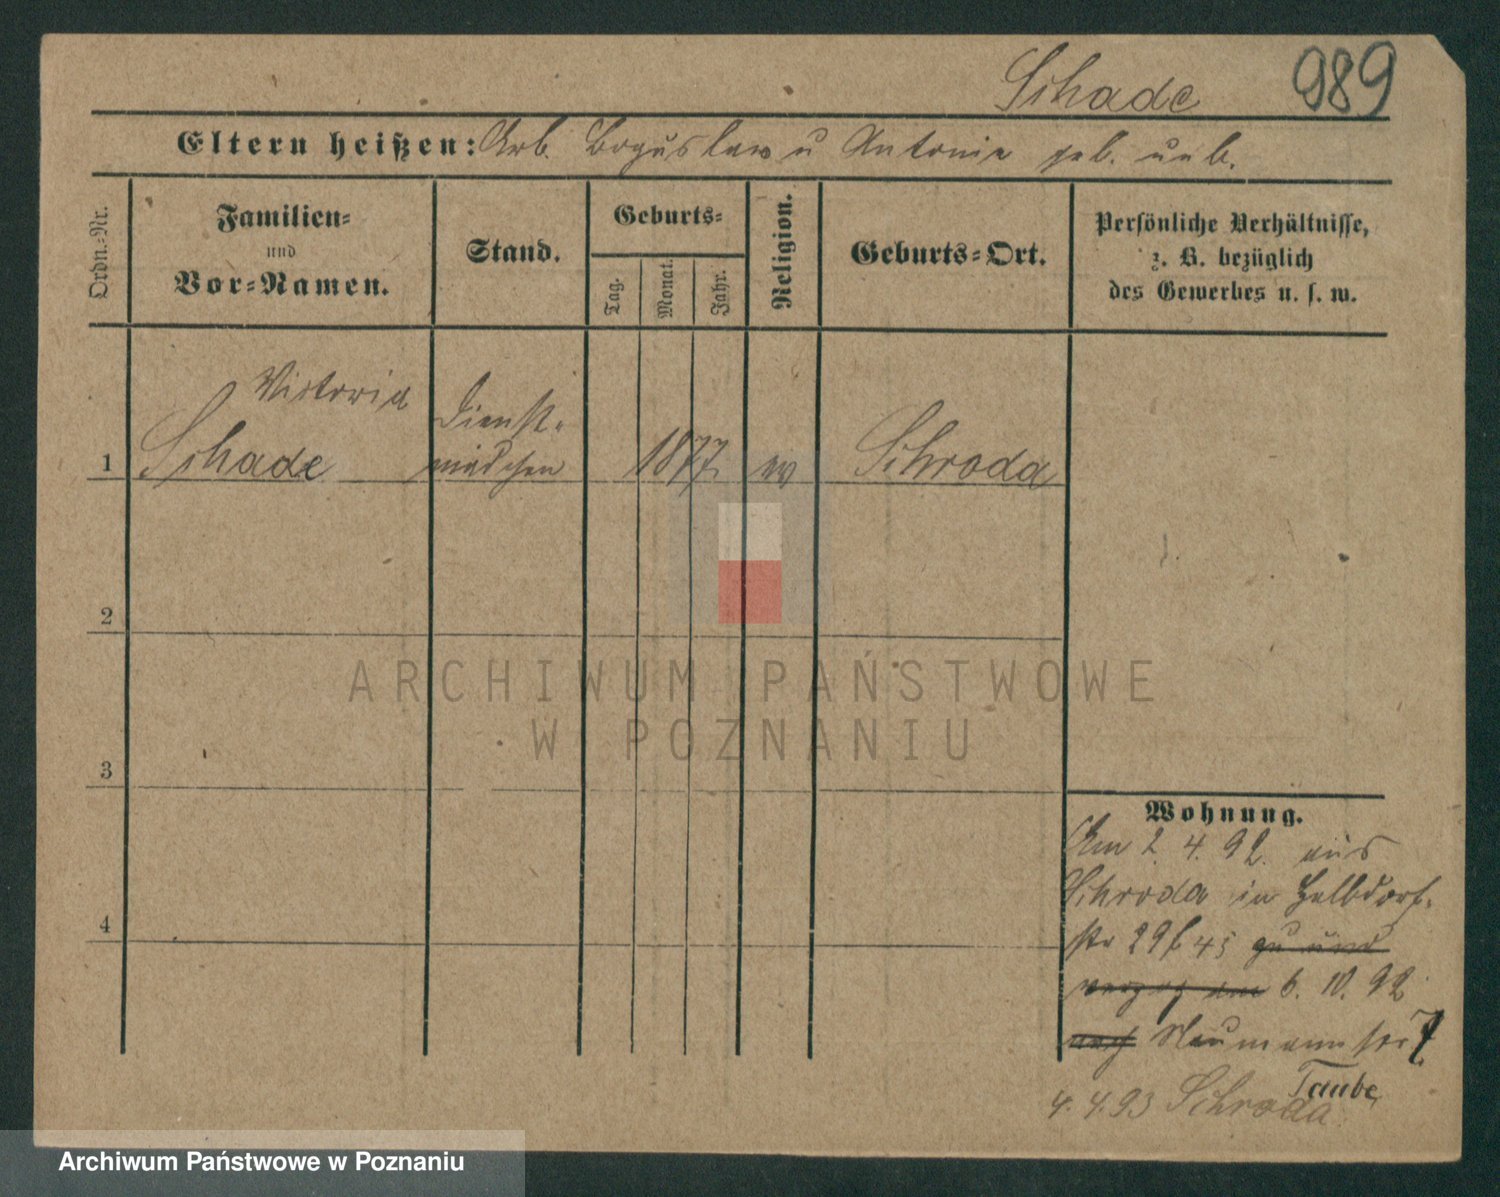 Schade 989
Eltern heißen: Arb. Boguslaw u Antonie geb. unb.
Ordn.-Nr.
Familien-
und
Vor-Namen.
Stand.
Geburts-
Tag.
Monat.
Jahr.
Religion.
Geburts-Ort.
Persönliche Verhältnisse,
z. B. bezüglich
des Gewerbes u. s. w.
Victoria
1 Schade
Dienst-
mädchen
1877
Schroda
2
3
4
ARCHIWUM PAŃSTWOWE
W POZNANIU
Wohnung.
Am 2. 4. 92. aus
Schroda in Halbdorf-
str 29 b 45 zu und
verzog am 6. 10. 92
nach Naumannstr 7
Taube
4. 4. 93 Schroda
Archiwum Państwowe w Poznaniu